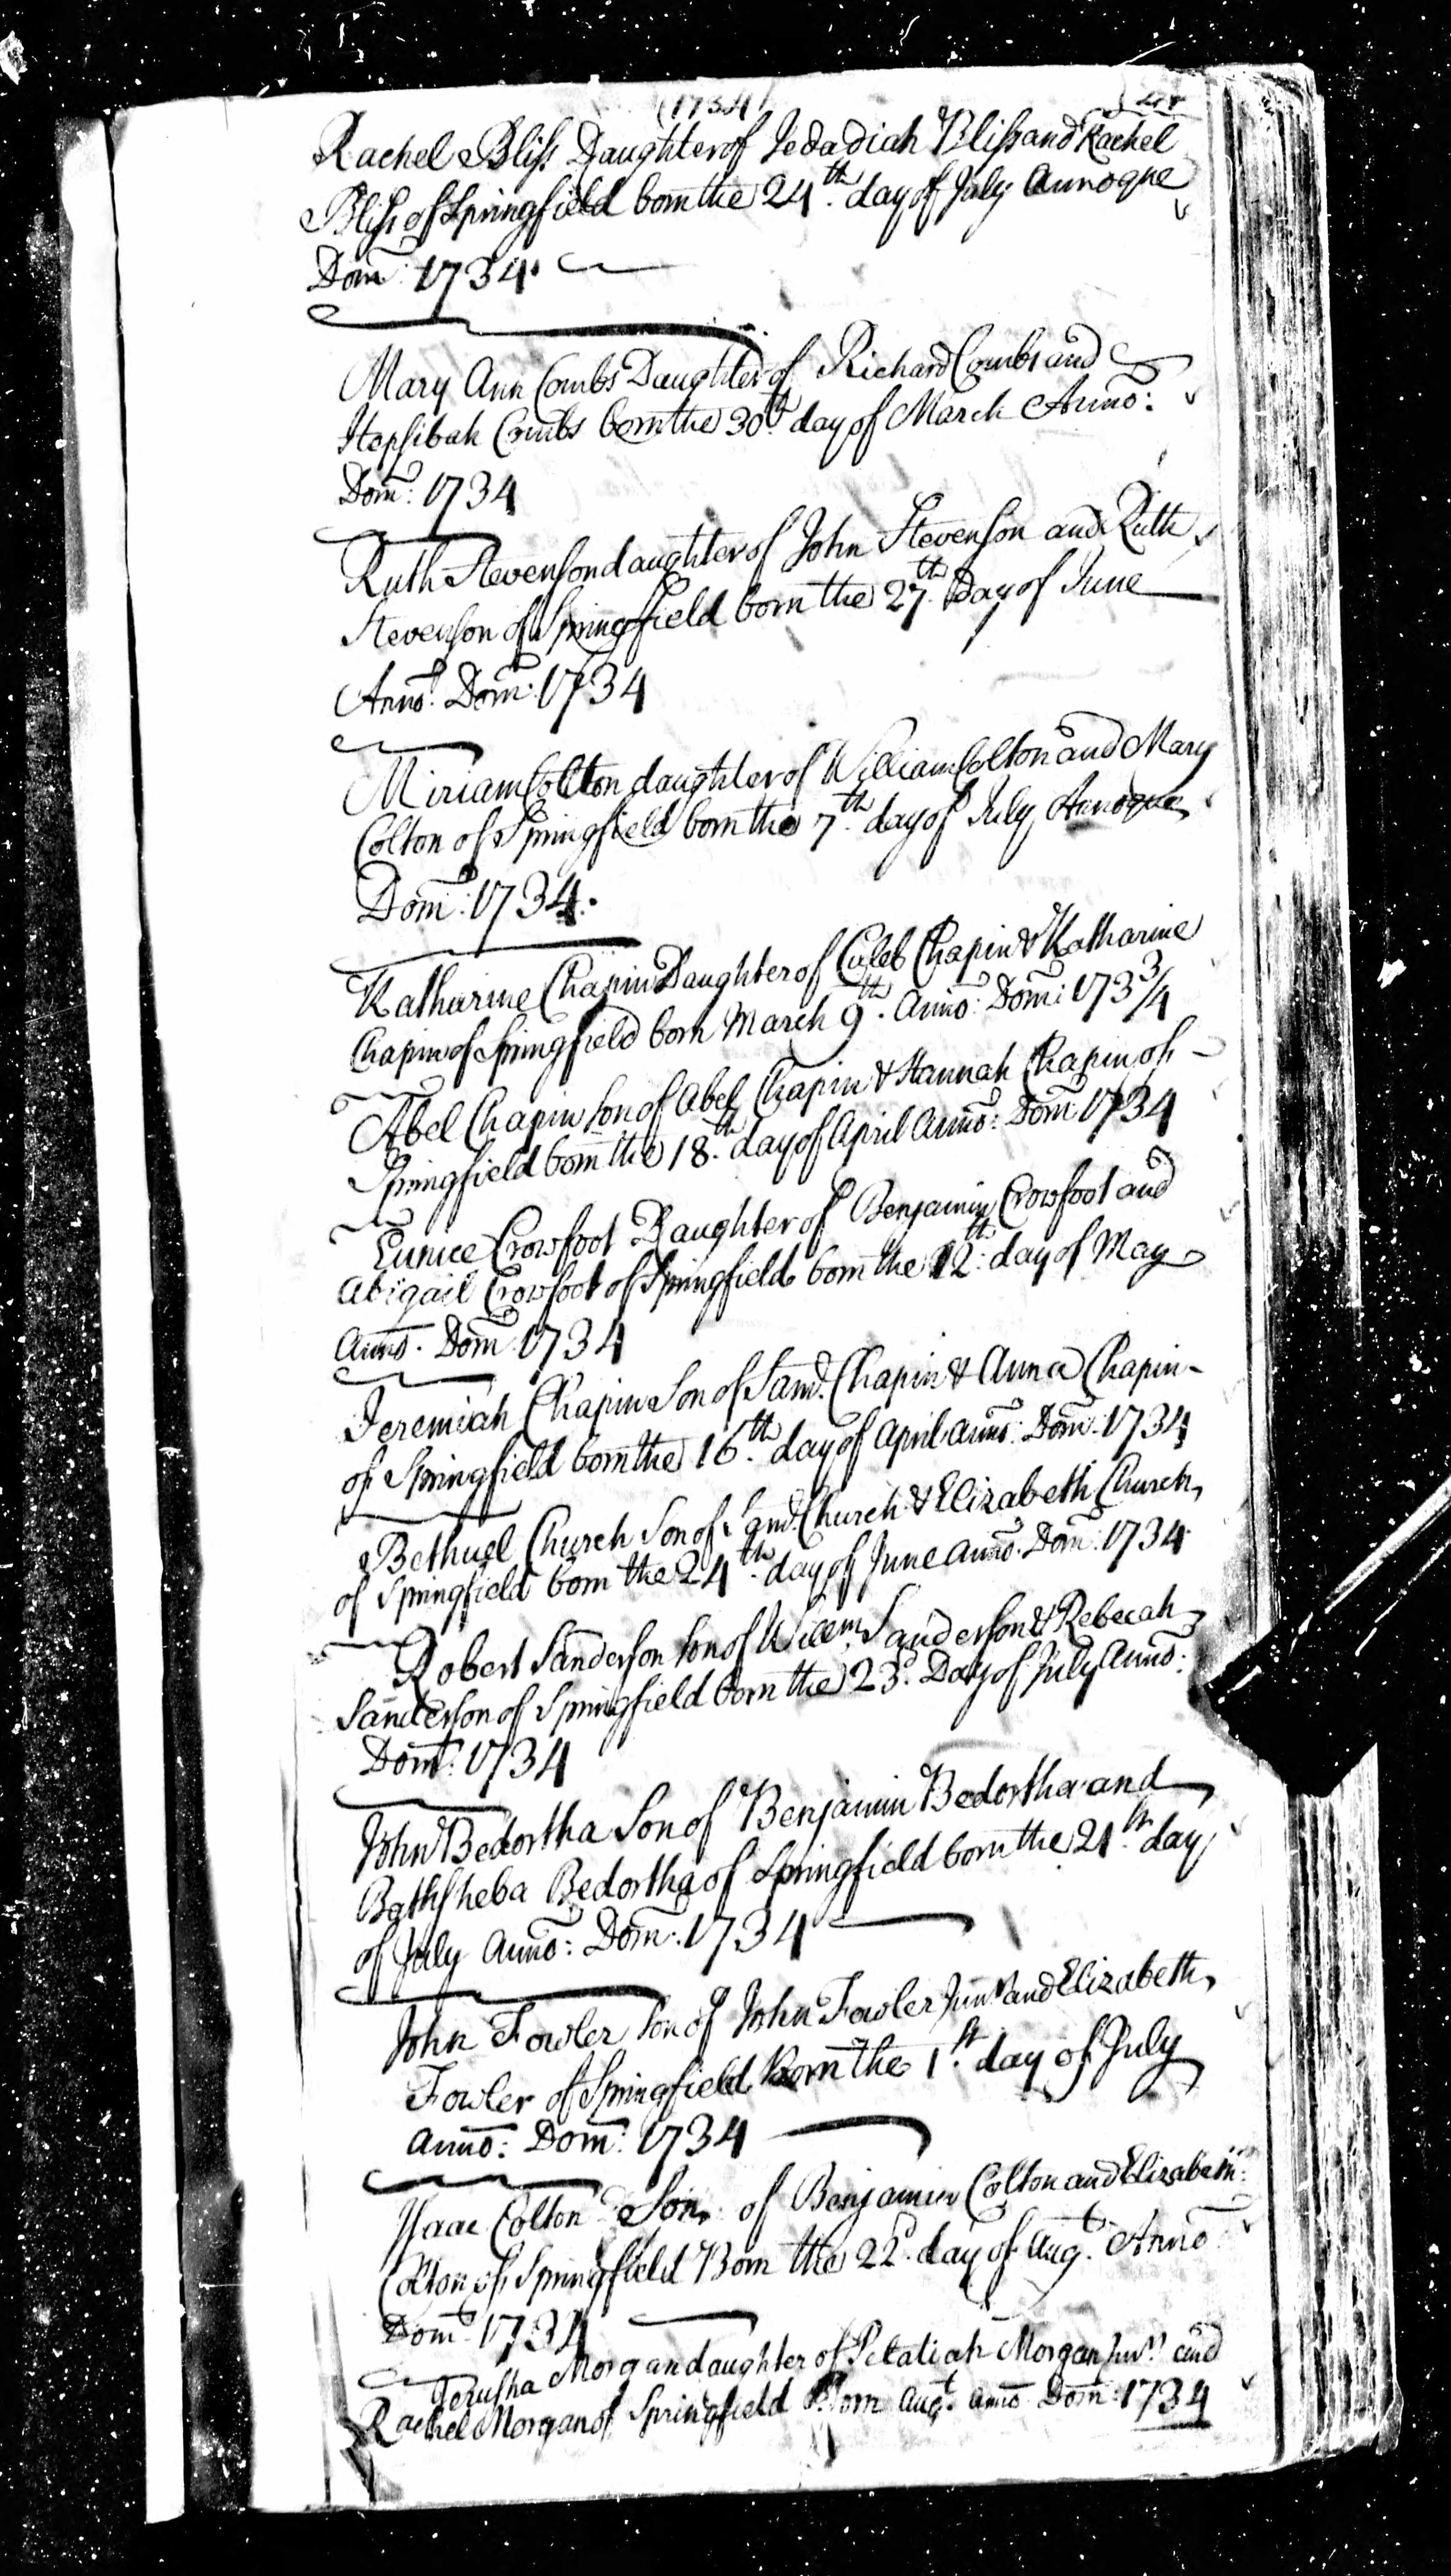 (1734)
Rachel Bliss Daughter of Jedadiah Bliss and Rachel
Bliss of Springfield born the 24th. day of July Annoque
Dom: 1734.
Mary Ann Combs Daughter of Richard Combs and
Hepsibah Combs born the 30th day of March Anno:
Dom: 1734
Ruth Stevenson daughter of John Stevenson and Ruth
Stevenson of Springfield born the 27th. Day of June
Anno. Dom: 1734
Miriam Colton daughter of William Colton and Mary
Colton of Springfield born the 7th. day of July Annoque
Dom: 1734.
Katharine Chapin Daughter of Caleb Chapin & Katharine
Chapin of Springfield born March 9th. Anno: Dom: 173 3/4
Abel Chapin son of Abel Chapin & Hannah Chapin of
Springfield born the 18.th day of April Anno: Dom: 1734
Eunice Crowfoot Daughter of Benjamin Crowfoot and
Abigail Crowfoot of Springfield born the 12th: day of May
Anno. Dom 1734
Jeremiah Chapin Son of Saml. Chapin & Anna Chapin
of Springfield born the 16.th day of April Anno: Dom: 1734
Bethuel Church Son of Saml. Church & Elizabeth Church
of Springfield born the 24th. day of June Anno. Dom: 1734
Robert Sanderson son of Willm. Sanderson & Rebecah
Sanderson of Springfield born the 23d. Day of July Anno:
Dom: 1734
John Bedortha Son of Benjamin Bedortha and
Bathsheba Bedortha of Springfield born the 21th. day
of July Anno: Dom: 1734
John Fowler son of John Fowler Junr. and Elizabeth
Fowler of Springfield Born the 1.st day of July
Anno: Dom: 1734
Isaac Colton Son of Benjamin Colton and Elizabeth
Colton of Springfield Born the 22d. day of Augt. Anno
Dom 1734
Jerusha Morgan daughter of Pelatiah Morgan Junr. and
Rachel Morgan of Springfield Born Augt. Anno Dom: 1734